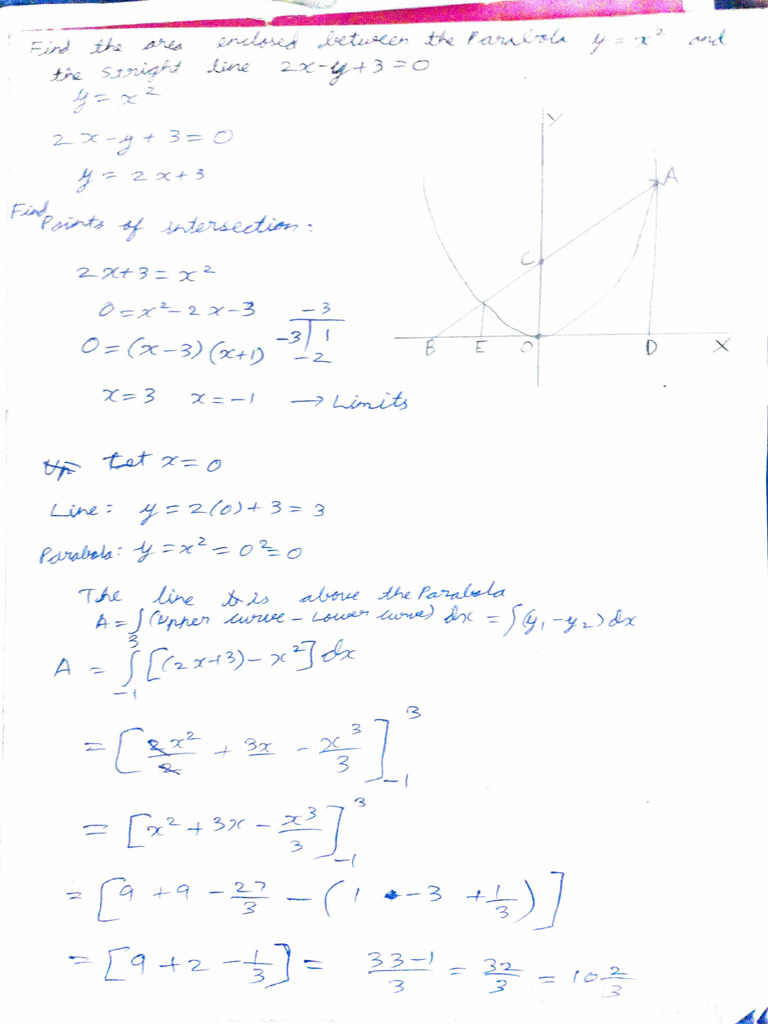 Find the area enclosed between the Parabola y = x² and
the stright line 2x-y+3=0
y = x²
2x-y+3=0
y = 2x+3
Find Points of intersection:
2x+3 = x²
0 = x²-2x-3
0 = (x-3)(x+1)
-3
-3 | 1
-2
x=3 x=-1 → Limits
Y
A
C
B E O D X
Let x=0
Line: y = 2(0)+3 = 3
Parabola: y = x² = 0² = 0
The line is above the Parabola
A = ∫(Upper curve - Lower curve) dx = ∫(y₁-y₂)dx
A = ∫₋₁³ [(2x+3)-x²]dx
= [2x²/2 + 3x - x³/3]₋₁³
= [x²+3x-x³/3]₋₁³
= [9+9-27/3-(1-3+1/3)]
= [9+2-1/3] = 33-1/3 = 32/3 = 10 2/3